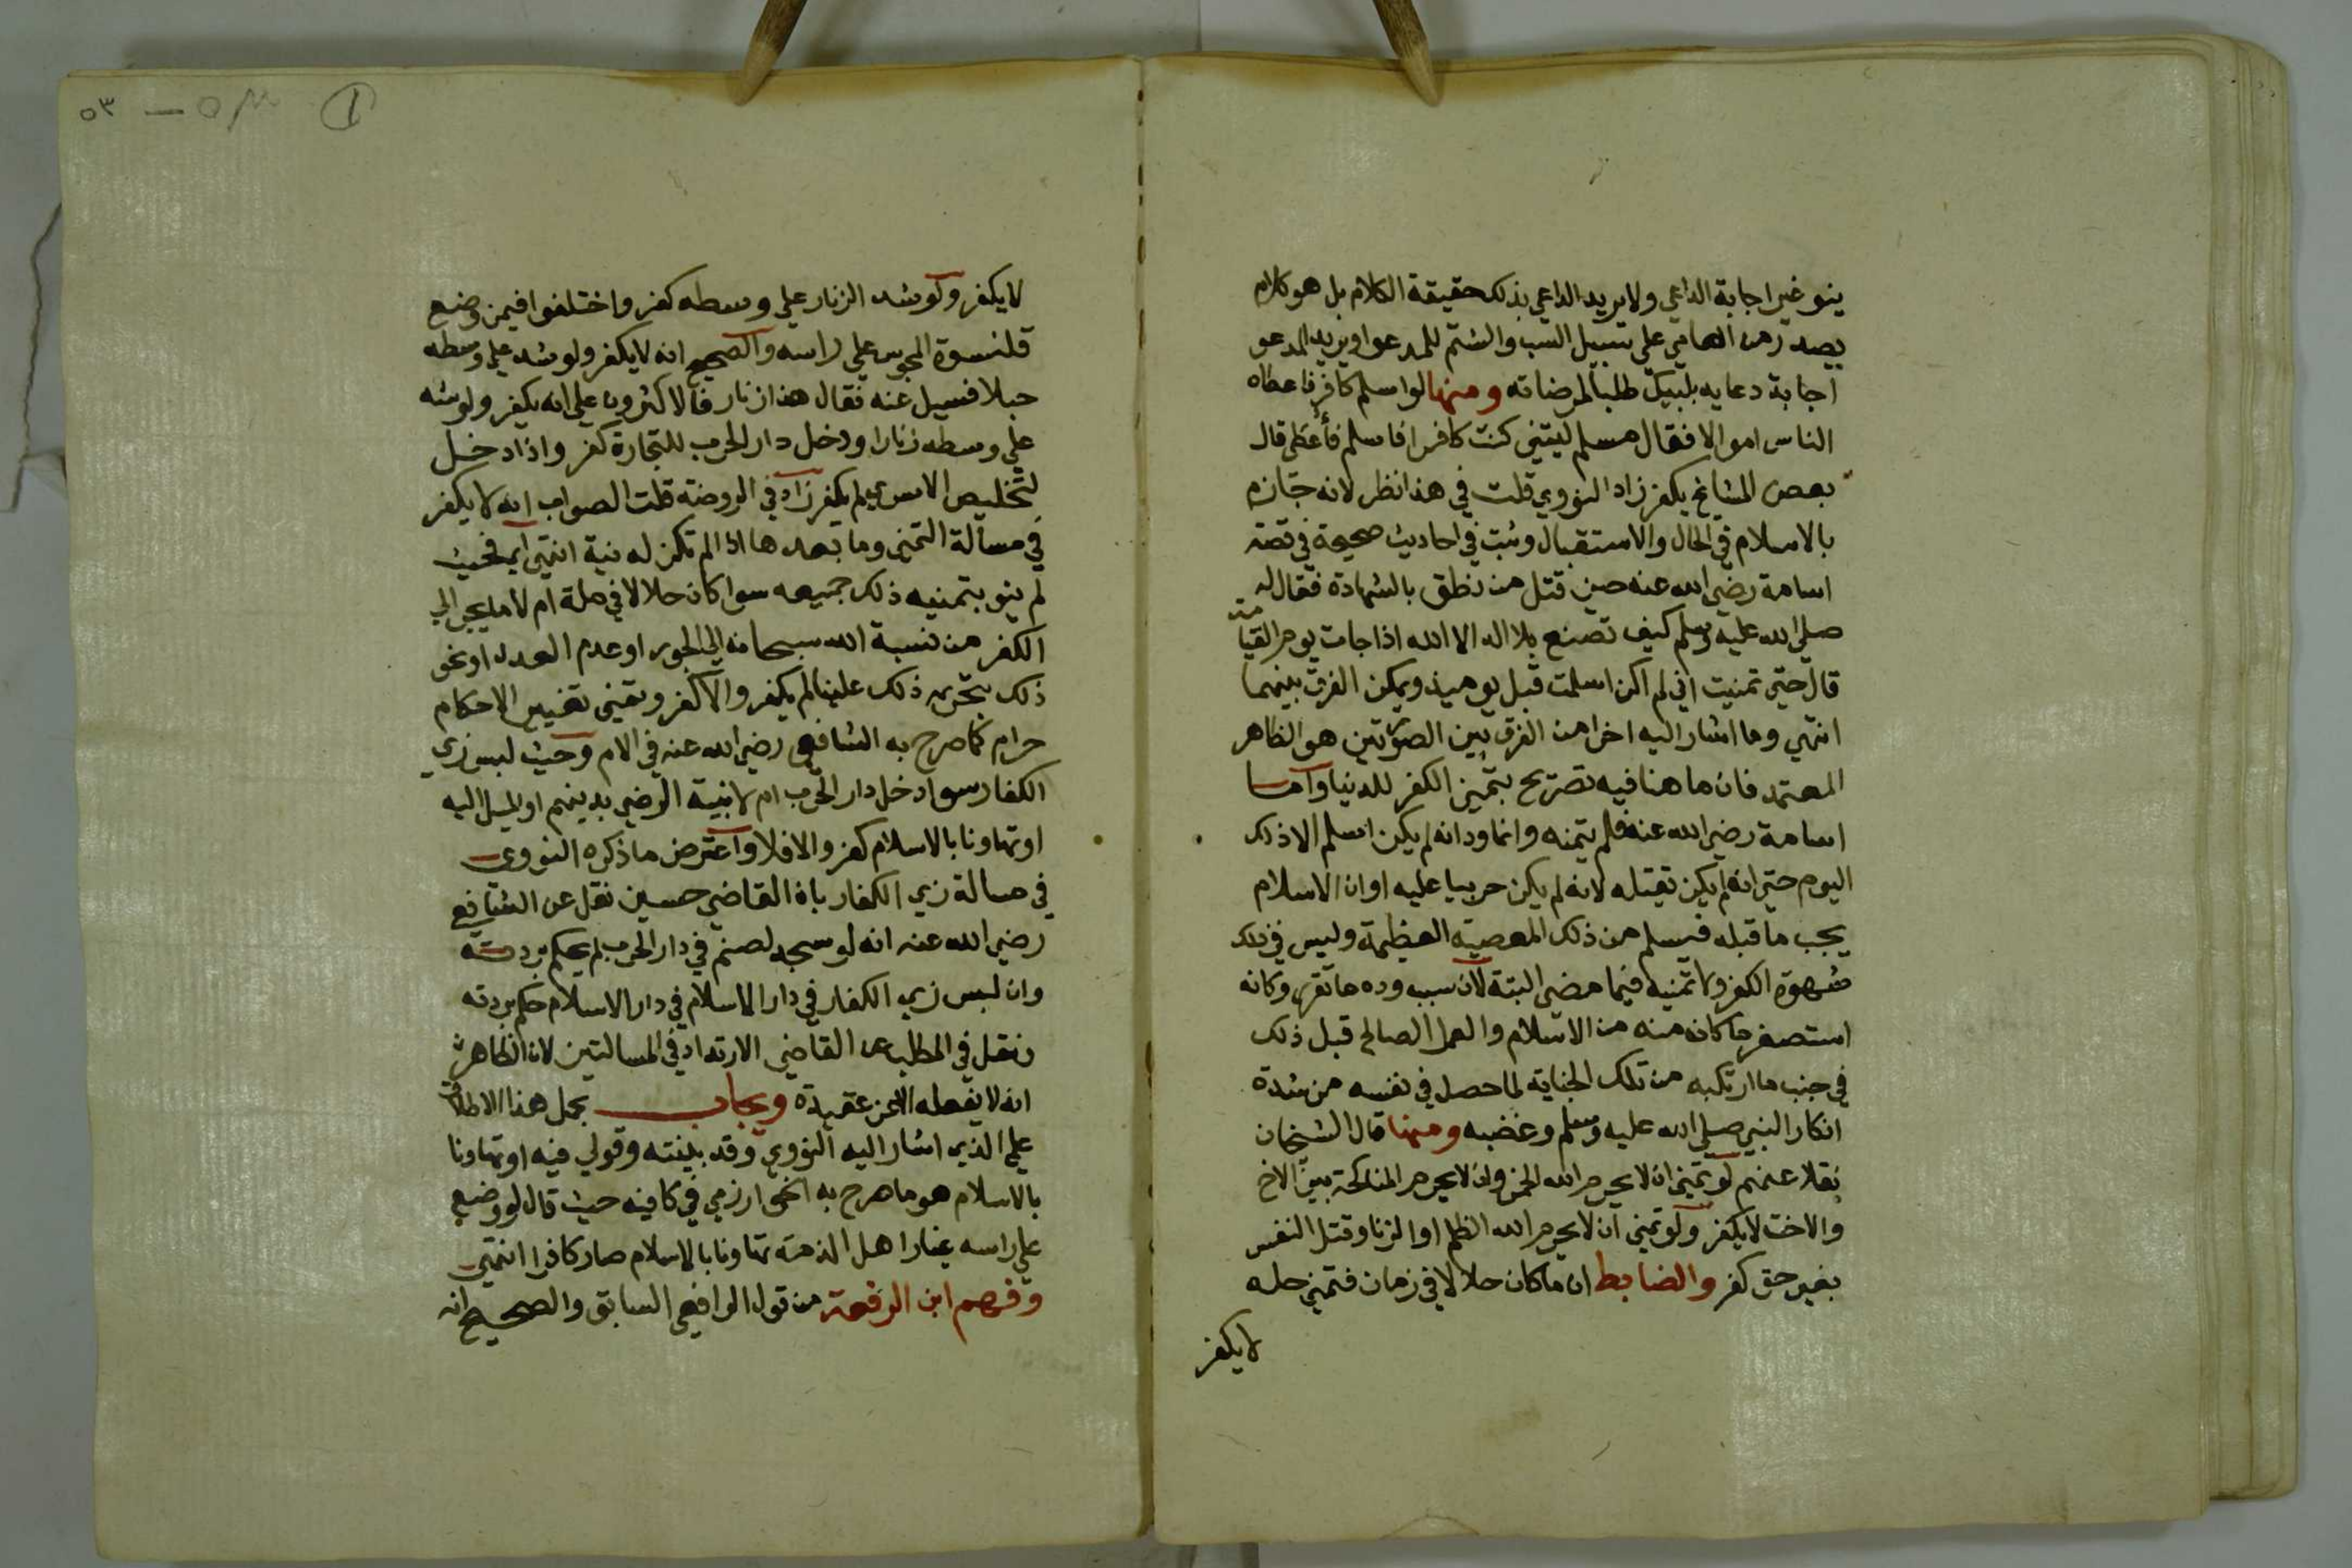 ينو غير اجابة الداعي ولا يريد الداعي بذلك حقيقة الكلام بل هو كلام
يصدر من العامي على سبيل السب والشتم للمدعو او يريد المدعو
اجابة دعايه بلبيك طلبا لمرضاته ومنها لو اسلم كافر فاعطاه
الناس اموالا فقال مسلم ليتني كنت كافرا فاسلم فأعطى قال
بعض المشايخ يكفر زاد النووي قلت في هذا نظر لانه جازم
بالاسلام في الحال والاستقبال وثبت في احاديث صحيحة في قصة
اسامة رضي الله عنه حين قتل من نطق بالشهادة فقال له
صلى الله عليه وسلم كيف تصنع بلا اله الا الله اذا جات يوم القيامة
قال حتى تمنيت اني لم اكن اسلمت قبل يوميذ ويمكن الفرق بينهما
انتهي وما اشار اليه اخرا من الفرق بين الصورتين هو الظاهر
المعتمد فان ما هنا فيه تصريح بتمني الكفر للدنيا واما
اسامة رضي الله عنه فلم يتمنه وانما ود انه لم يكن اسلم الا ذلك
اليوم حتى انه لم يكن بقتله لانه لم يكن حربيا عليه او ان الاسلام
يجب ما قبله فيسلم من ذلك المعصية العظيمة وليس في ذلك
شهوة الكفر ولا تمنيه فيما مضى البتة لان سبب وده ما تقرر وكانه
استصغر ما كان منه من الاسلام والعمل الصالح قبل ذلك
في جنب ما ارتكبه من تلك الجناية لما حصل في نفسه من شدة
انكار النبي صلى الله عليه وسلم وغضبه ومنها قال الشيخان
نقلا عنهم لو تمنى ان لا يحرم الله الخمر وان لا يحرم المناكحة بين الاخ
والاخت لا يكفر ولو تمنى ان لا يحرم الله الظلم او الزنا وقتل النفس
بغير حق كفر والضابط ان ما كان حلالا في زمان فتمنى حله
لا يكفر
٥٣
لا يكفر ولو شد الزنار علي وسطه كفر واختلفوا فيمن وضع
قلنسوة المجوس علي راسه والصحيح انه لا يكفر ولو شد علي وسطه
حبلا فسيل عنه فقال هذا زنار فالاكثرون على انه يكفر ولو شد
على وسطه زنارا ودخل دار الحرب للتجارة كفر واذا دخل
لتخليص الاسرى لم يكفر زاد في الروضة قلت الصواب انه لا يكفر
في مسألة التمني وما بعدها اذا لم تكن له نية انتهى فحيث
لم ينو بتمنيه ذلك جميعه سوا كان حلالا في ملة ام لا ما يجر الي
الكفر من نسبة الله سبحانه الي الجور او عدم العدل او نحو
ذلك بتحريم ذلك علينا لم يكفر والا كفر وتمنى تغيير الاحكام
حرام كما صرح به الشافعي رضي الله عنه في الام وحيث لبس زي
الكفار سوا دخل دار الحرب ام لا بنية الرضي بدينهم او الميل اليه
او تهاونا بالاسلام كفر والا فلا واعترض ما ذكره النووي
في مسالة زي الكفار بان القاضي حسين نقل عن الشافعي
رضي الله عنه انه لو سجد لصنم في دار الحرب لم يحكم بردته
وان لبس زي الكفار في دار الاسلام في دار الاسلام حكم بردته
ونقل في المطلب عن القاضي الارتداد في المسالتين لان الظاهر
انه لا يفعله الا عن عقيدة ويجاب بحمل هذا الاطلاق
علي الذي اشار اليه النووي وقد بينته وقولي فيه او تهاونا
بالاسلام هو ما صرح به الخوارزمي في كافيه حيث قال لو وضع
على راسه غيار اهل الذمة تهاونا بالاسلام صار كافرا انتهى
وفهم ابن الرفعة من قول الرافعي السابق والصحيح انه